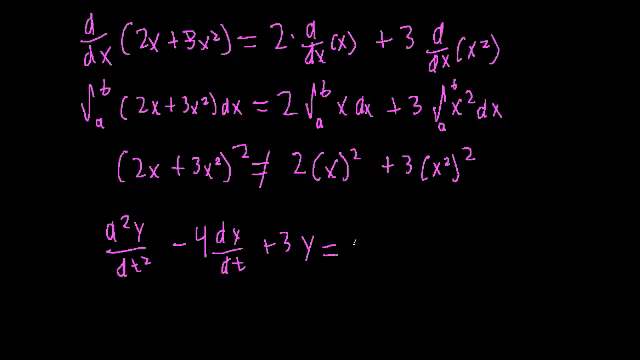 d/dx (2x + 3x²) = 2 · d/dx (x) + 3 d/dx (x²)
∫ₐᵇ (2x + 3x²) dx = 2 ∫ₐᵇ x dx + 3 ∫ₐᵇ x² dx
(2x + 3x²)² ≠ 2(x)² + 3(x²)²
d²y/dt² - 4 dx/dt + 3y =